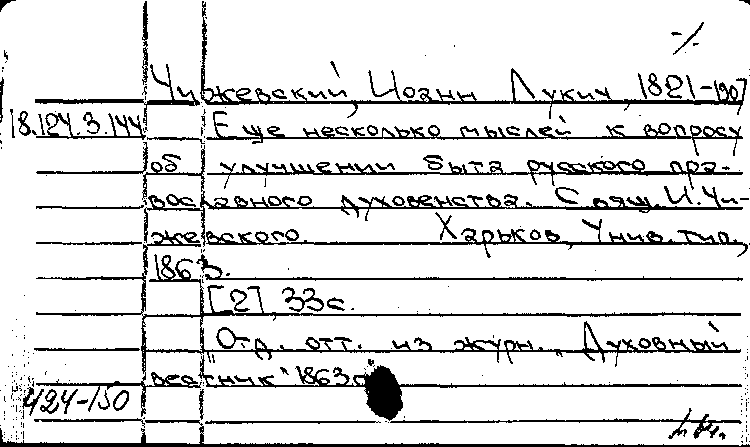 Чижевский, Иоанн Лукич, 1821-1907
18.124.3.144
Еще несколько мыслей к вопросу
об улучшении быта русского пра-
вославного духовенства. Свящ. И. Чи-
жевского. Харьков, Унив. тип.,
1863.
[2], 33 с.
Отд. отт. из журн. „Духовный
вестник" 1863 г.
424-150